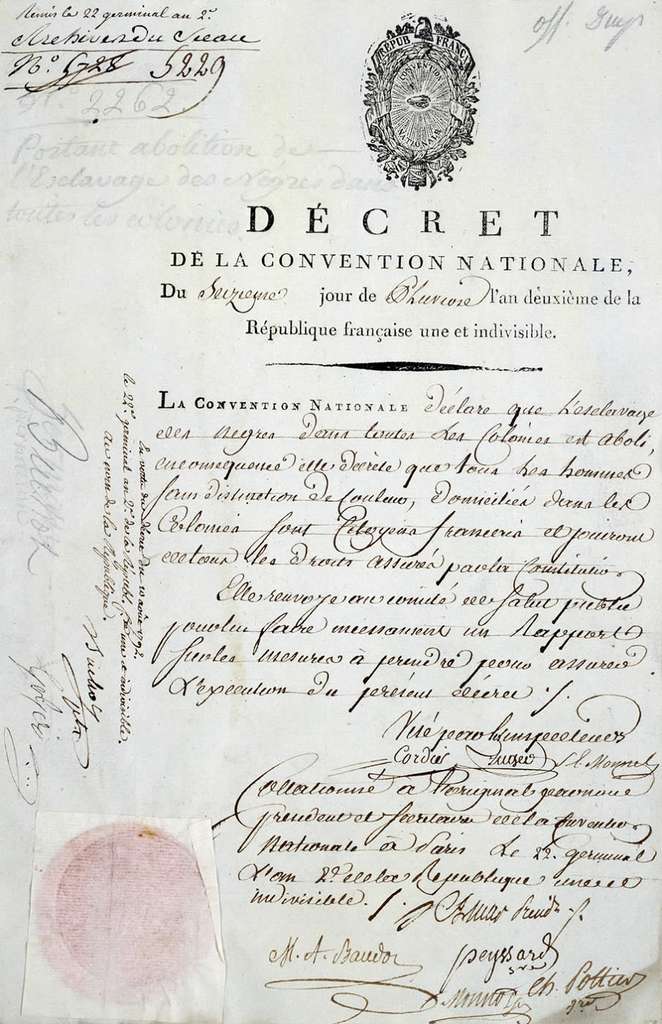 Remis le 22 germinal an 2.e
Archives du Sceau
N.o 5229
2262.
Portant abolition de
l'Esclavage des Nègres dans
toutes les colonies.
off.
RÉPUB FRANÇ
CONVENTION
NATIONALE
DÉCRET
DE LA CONVENTION NATIONALE,
Du Seizieme jour de Pluviose l'an deuxième de la
République française une et indivisible.
LA CONVENTION NATIONALE Déclare que l'esclavage
des negres dans toutes les Colonies est aboli,
en consequence elle décrète que tous les hommes
sans distinction de Couleur, Domiciliés dans les
Colonies sont Citoyens francais et jouiront
de tous les Droits assurés par la Constitution.
Elle renvoye au comité de Salut public
pour lui faire incessament un Rapport
sur les mesures à prendre pour assurer
L'execution du présent décret ./.
Visé par les inspecteurs
Cordier S. E. Monnel
Collationné à l'original par nous
president et Secretaires de la Convention
Nationale à Paris Le 22. germinal
L'an 2.e de la Republique une et
indivisible. ./.
Amar Presid.t
M. A. Baudot
peyssard
Monnot
Ch. Pottier
En vertu du décret du 10 août 1792.
le 22.e germinal an 2.e de la Républ. f. une et indivisible.
au nom de la République.
Buchot
Gohier